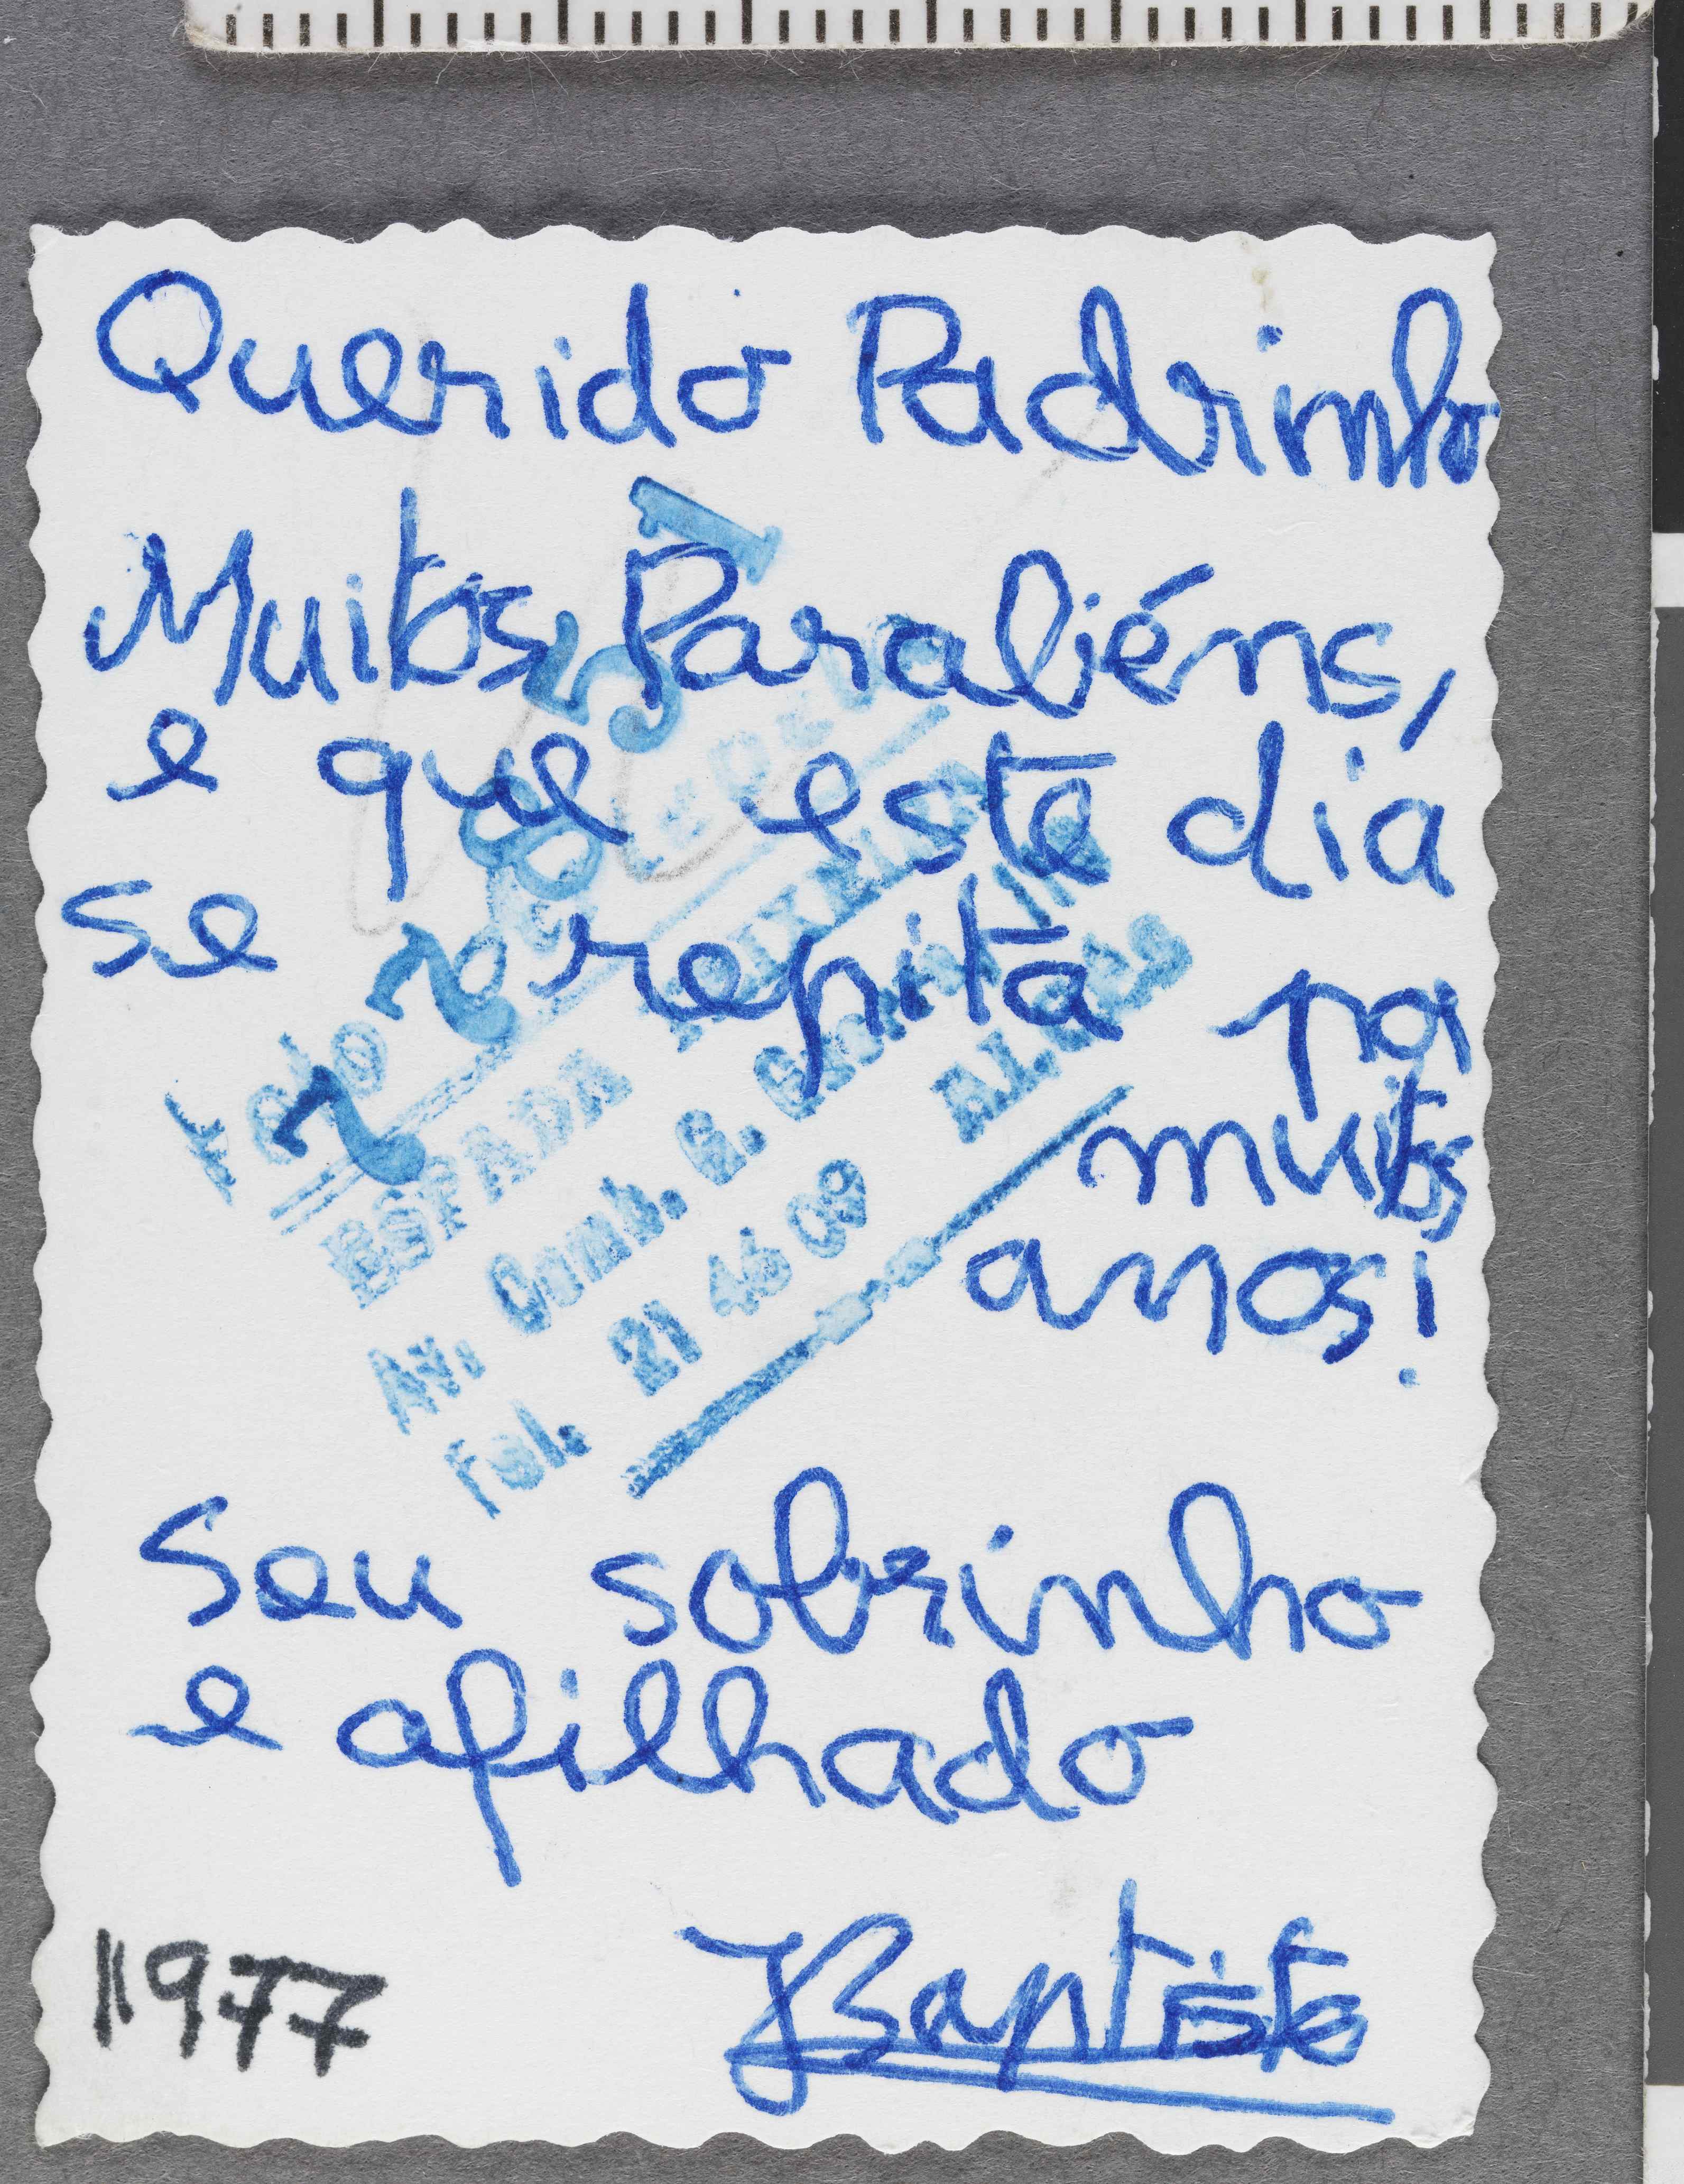 Querido Padrinho
Muitos Parabéns,
e que este dia
se repita por
muitos
anos!
Seu sobrinho
e afilhado
JBaptista
1977
77851
FOTO
ESPADA
Av. Comb. G.
Tel. 21 46 09